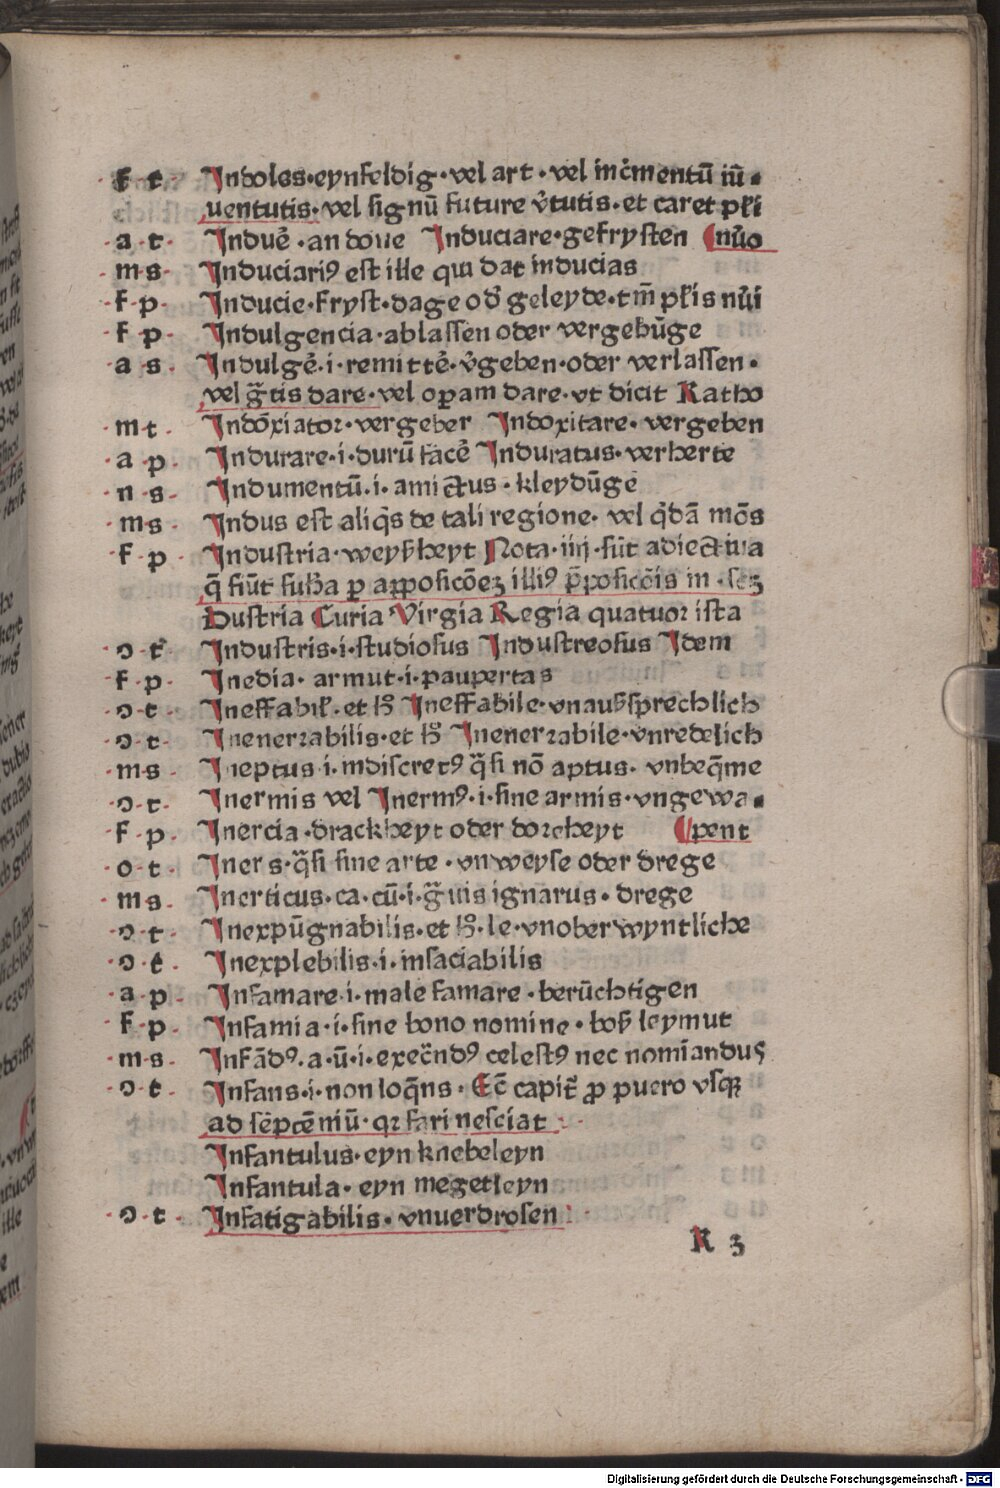 f t Indoles·eynfeldig·vel art·vel incͬmentū iū·
uentutis·vel signū future v̓tutis·et caret pl̓i
a t Induē·an doue Induciare·gefrysten nūo
m s Induciariꝰ est ille qui dat inducias
f p Inducie·fryst·dage od̓ geleyde·tm̄ pl̓is nūi
f p Indulgencia·ablassen oder vergebūge
a s Indulgē·i·remittē·v̓geben·oder verlassen·
vel gr̄tis dare·vel oꝑam dare·vt dicit Katho
m t Indōxiator·vergeber Indoxitare·vergeben
a p Indurare·i·durū facē Induratus·verherte
n s Indumentū·i·amictus·kleydūge
m s Indus est aliq̓s de tali regione·vel q̓dā mōs
f p Industria·weyßheyt Nota·iiij·sūt adiectiua
q̄ fiūt sub̄a ꝑ apposicōeꝫ illiꝰ p̄posicōis in·seꝫ
Dustria Curia Virgia Regia quatuor ista
o t Industris·i·studiosus Industreosus Idem
f p Inedia·armut·i·paupertas
o t Ineffabil̓·et h̄ Ineffabile·vnaußsprechlich
o t Inenerrabilis·et h̄ Inenerrabile·vnredelich
m s Ineptus·i·indiscretꝰ q̄si nō aptus·vnbeq̄me
o t Inermis vel Inermꝰ·i·sine armis·vngewa·
f p Inercia·drackheyt oder dorcheyt pent
o t Iners·q̄si sine arte·vnweyse oder drege
m s Inerticus·ca·cū·i·gͣuis ignarus·drege
o t Inexpūgnabilis·et h̄·le·vnoberwyntliche
o t Inexplebilis·i·insaciabilis
a p Infamare·i·male famare·berūchtigen
f p Infamia·i·sine bono nomine·boß leymut
m s Infādꝰ·a·ū·i·execr̄ndꝰ celestꝰ nec nomīandus
o t Infans·i·non loq̄ns·Ec̄ capit̓ ꝓ puero vsqꝫ
ad sēptēniū·qꝛ fari nesciat
Infantulus·eyn knebeleyn
Infantula·eyn megetleyn
o t Infatigabilis·vnuerdrosen
K 3
Digitalisierung gefördert durch die Deutsche Forschungsgemeinschaft · DFG